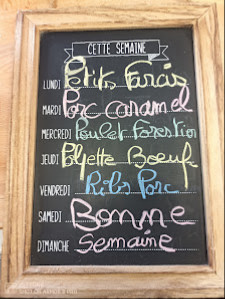 CETTE SEMAINE
LUNDI Petits Farcis
MARDI Porc caramel
MERCREDI Poulet Forestier
JEUDI Paupiette Boeuf
VENDREDI Ribs Porc
SAMEDI Bonne
DIMANCHE Semaine